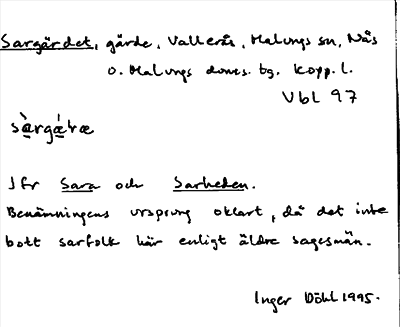 Sargärdet, gärde, Vallerås, Malungs sn, Nås
o. Malungs doms. tg. Kopp. l.
Vbl 97
sàrgǽræ
Jfr Sara och Sarheden.
Benämningens ursprung oklart, då det inte
bott sarfolk här enligt äldre sagesmän.
Inger Döhl 1995.